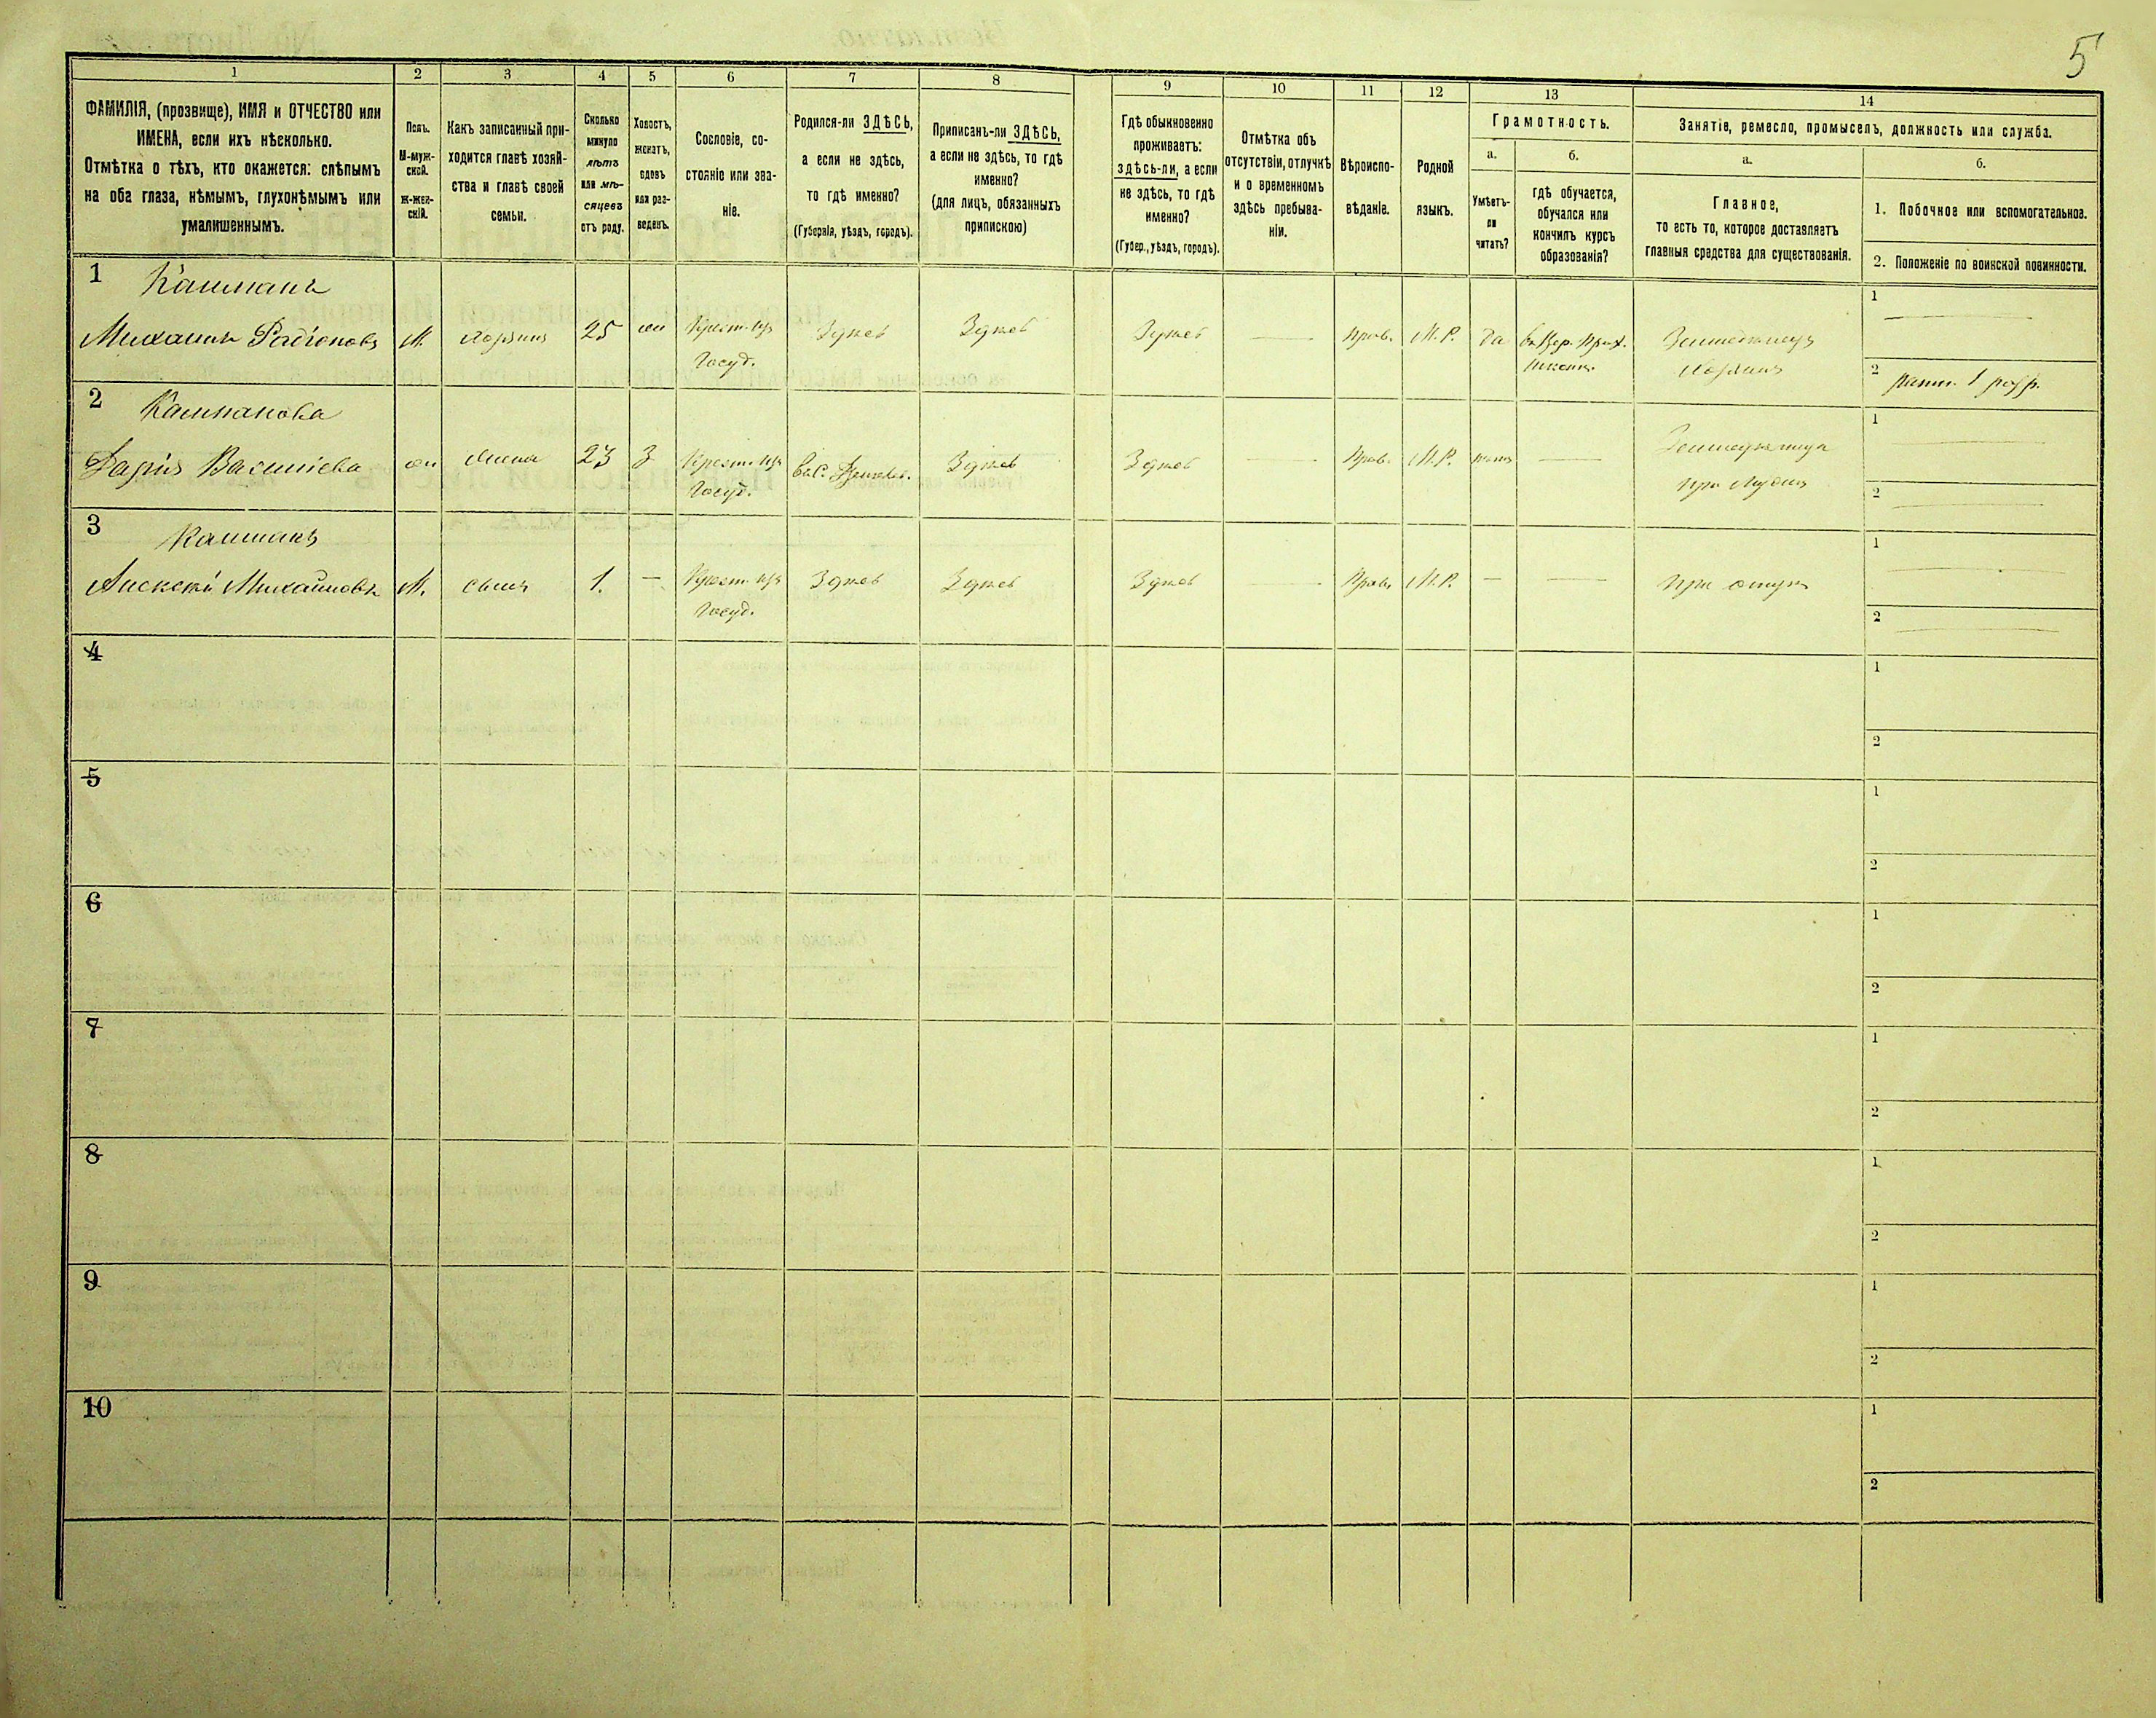 5
1 2 3 4 5 6 7 8 9 10 11 12 13 14
ФАМИЛІЯ, (прозвище), ИМЯ и ОТЧЕСТВО или
ИМЕНА, если ихъ нѣсколько.
Отмѣтка о тѣхъ, кто окажется: слѣпымъ
на оба глаза, нѣмымъ, глухонѣмымъ или
умалишеннымъ.
Полъ.
М-муж-
ской.
Ж-жен-
скій.
Какъ записанный при-
ходится главѣ хозяй-
ства и главѣ своей
семьи.
Сколько
минуло
лѣтъ
или мѣ-
сяцевъ
отъ роду.
Холостъ,
женатъ,
вдовъ
или раз-
веденъ.
Сословіе, со-
стояніе или зва-
ніе.
Родился-ли ЗДѢСЬ,
а если не здѣсь,
то гдѣ именно?
(Губернія, уѣздъ, городъ).
Приписанъ-ли ЗДѢСЬ,
а если не здѣсь, то гдѣ
именно?
(для лицъ, обязанныхъ
припискою)
Гдѣ обыкновенно
проживаетъ:
здѣсь-ли, а если
не здѣсь, то гдѣ
именно?
(Губер., уѣздъ, городъ).
Отмѣтка объ
отсутствіи, отлучкѣ
и о временномъ
здѣсь пребыва-
ніи.
Вѣроиспо-
вѣданіе.
Родной
языкъ.
Грамотность.
а. б.
Умѣетъ-
ли
читать?
гдѣ обучается,
обучался или
кончилъ курсъ
образованія?
Занятіе, ремесло, промыселъ, должность или служба.
а. б.
Главное,
то есть то, которое доставляетъ
главныя средства для существованія.
1. Побочное или вспомогательное.
2. Положеніе по воинской повинности.
1 Кашпанъ
Михаилъ Радіоновъ М. хозяинъ 25 жн Крест. изъ Здѣсь Здѣсь Здѣсь — Прав. М.Р. да въ Цер. Прих. Земледѣлецъ 1 —
Госуд. школѣ. хозяинъ 2 ратн. 1 разр.
2 Кашпанова
Дарія Василіева жн жена 23 З Крест. изъ Здѣсь Здѣсь — Прав. М.Р. нѣтъ — Земледѣлица 1 —
Госуд. при мужѣ 2 —
3 Кашпанъ
Алексѣй Михайловъ М. сынъ 1. — Крест. изъ Здѣсь Здѣсь Здѣсь — Прав. М.Р. — — при отцѣ 1 —
Госуд. 2 —
4 1
2
5 1
2
6 1
2
7 1
2
8 1
2
9 1
2
10 1
2